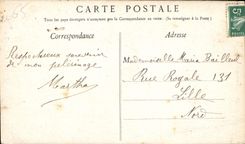 CARTE POSTALE
Tous les pays étrangers n'acceptent pas la Correspondance au verso. (Se renseigner à la Poste.)
Correspondance
Adresse
Respectueux souvenir
de mon pèlerinage
Marthe
Mademoiselle Marie Bailleul
Rue Royale 131
Lille
Nord
5